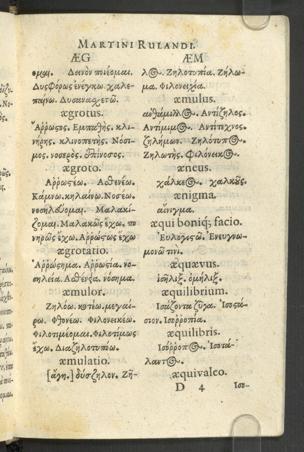 MARTINI RULANDI.
ÆG
ομαι. Δεινὸν ποιέομαι.
Δυσφόρως ἐνεγκω. χαλε-
παίνω. Δυσανασχετῶ.
ægrotus.
Ἄρρωστος. Ἐμπαθὴς. κλι-
νήρης. κλινοπετής. Νόσι-
μος. νοσερός.
ægroto.
Ἀρρωστέω. Ἀσθενέω.
Κάμνω. κηλαίνω. Νοσέω.
νοσηλεύομαι. Μαλακί-
ζομαι. Μαλακῶς ἔχω. πο-
νηρῶς ἔχω. Ἀρρώστως ἔχω
ægrotatio.
Ἀρρώστημα. Ἀρρωστία. νο-
σηλεία. Ἀσθένεια. νόσημα.
æmulor.
Ζηλόω. κοτέω. μεγαί-
ρω. Φθονέω. Φιλονεικέω.
Φιλοτιμέομαι. Φιλοτίμως
ἔχω. Διαζηλοτυπέω.
æmulatio.
δύσζηλον. Ζῆ-
ÆM
λος. Ζηλοτυπία. Ζήλω-
μα. Φιλονειχία.
æmulus.
ἀνθάμιλλος. Ἀντίζηλος.
Ἀντίμιμος. Ἀντίτεχνος.
ζηλήμων. Ζηλότυπος.
Ζηλωτής. Φιλόνεικος.
æneus.
χάλκεος. χαλκοῦς.
ænigma.
αἴνιγμα.
æqui boniq; facio.
Εὐλογιστῶ. Ἐνευγνω-
μονῶ τινι.
æquævus.
ἰσῆλιξ. ὁμῆλιξ.
æquilibrium.
Ἰσάζοντα ζυγα. Ἰσοστά-
σιον. Ἰσορροπία.
æquilibris.
Ἰσόρροπος. Ἰσοτά-
λαντος.
æquivaleo.
D 4 Ἰσο-